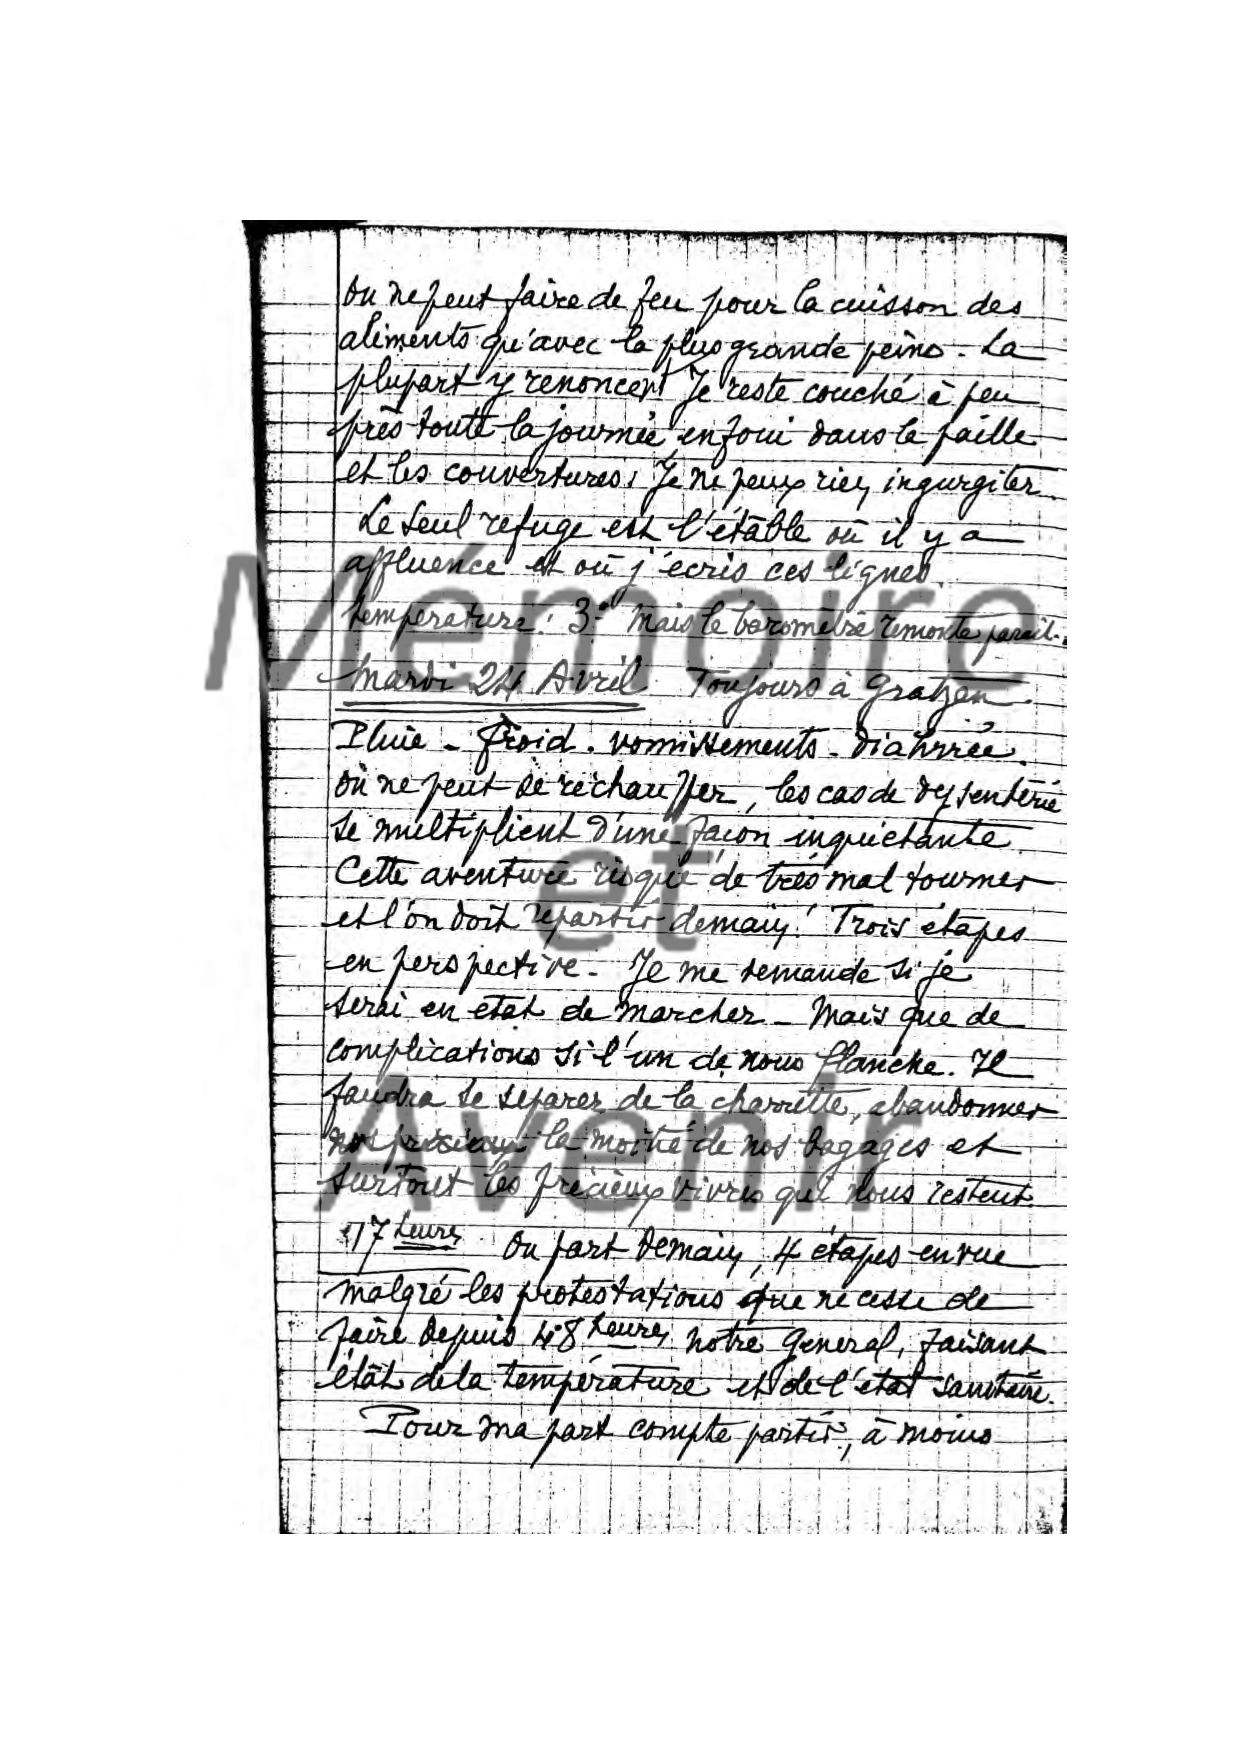 On ne peut faire de feu pour la cuisson des
aliments qu'avec la plus grande peine - La
plupart y renoncent Je reste couché à peu
près toute la journée enfoui dans la paille
et les couvertures. Je ne peux rien ingurgiter.
Le seul refuge est l'étable où il y a
affluence et où j'écris ces lignes.
température: 3° Mais le baromètre remonte parait-
Mardi 24 Avril Toujours à Gratzen.
Pluie - froid. vomissements - diahrrée.
On ne peut se réchauffer, les cas de dysenterie
se multiplient d'une façon inquiétante.
Cette aventure risque de très mal tourner
et l'on doit repartir demain! Trois étapes
en perspective - Je me demande si je
serai en état de marcher - Mais que de
complications si l'un de nous flanche. Il
faudra se séparer de la charrette, abandonner
la moitié de nos bagages et
surtout les précieux vivres qui nous restent.
17 heures On part demain, 4 étapes en vue
malgré les protestations que ne cesse de
faire depuis 48 heures notre Général, faisant
état de la température et de l'état sanitaire.
Pour ma part compte partir, à moins
Mémoire
et
Avenir